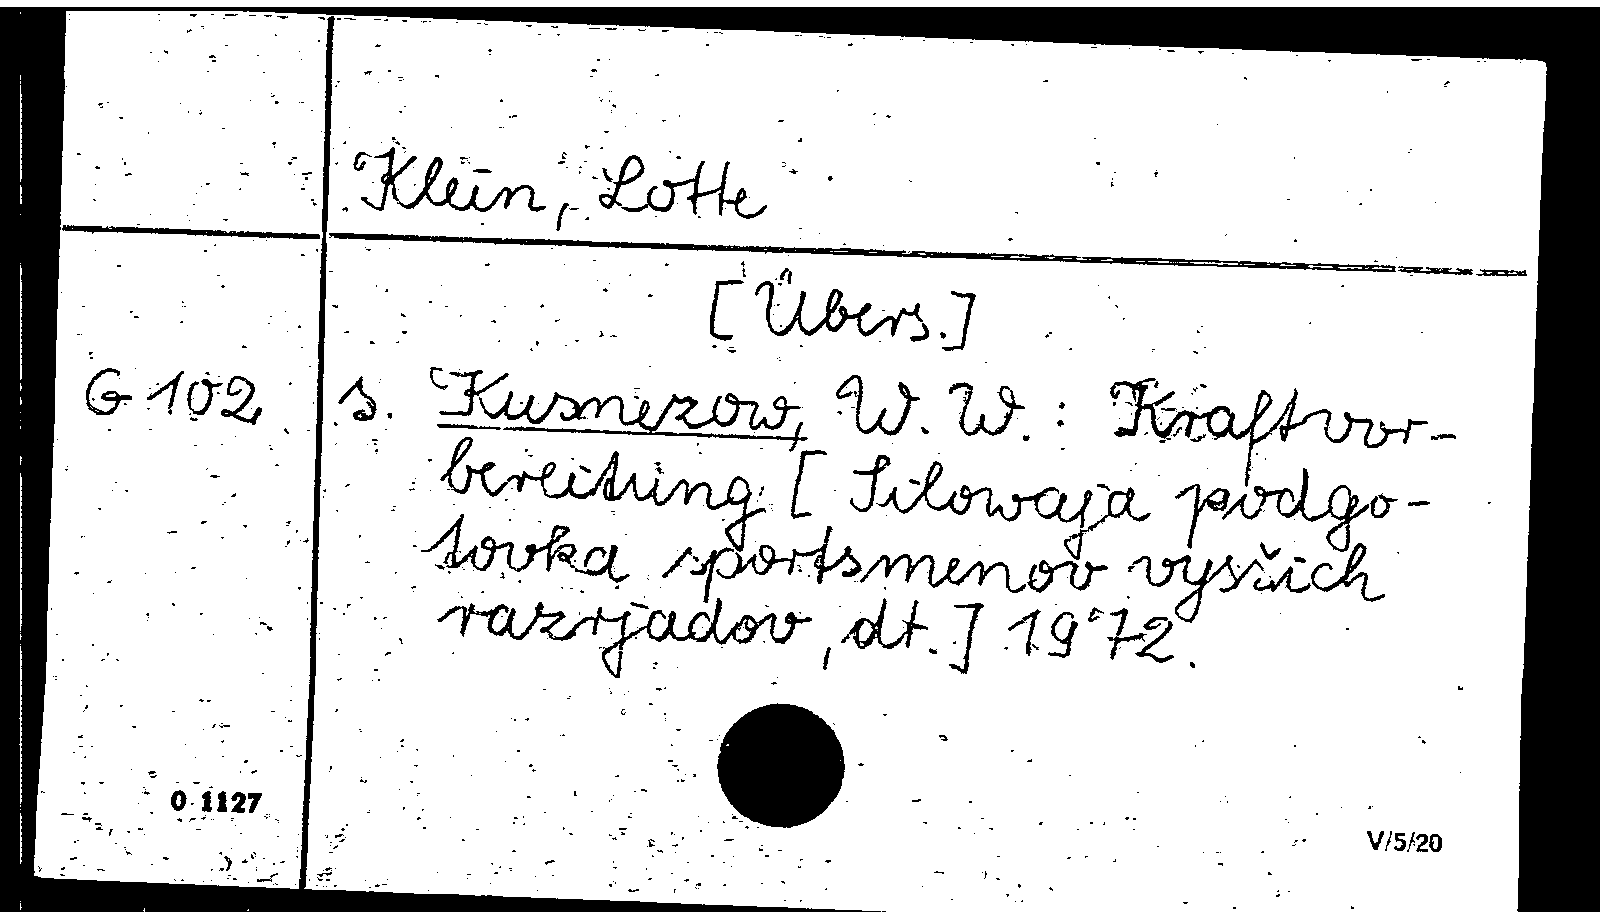 Klein, Lotte
[Übers.]
G 102 s. Kusnezow, W. W. : Kraftvor-
bereitung [ Silowaja podgo-
tovka sportsmenov vysšich
razrjadov, dt.] 1972.
0 1127
V/5/20